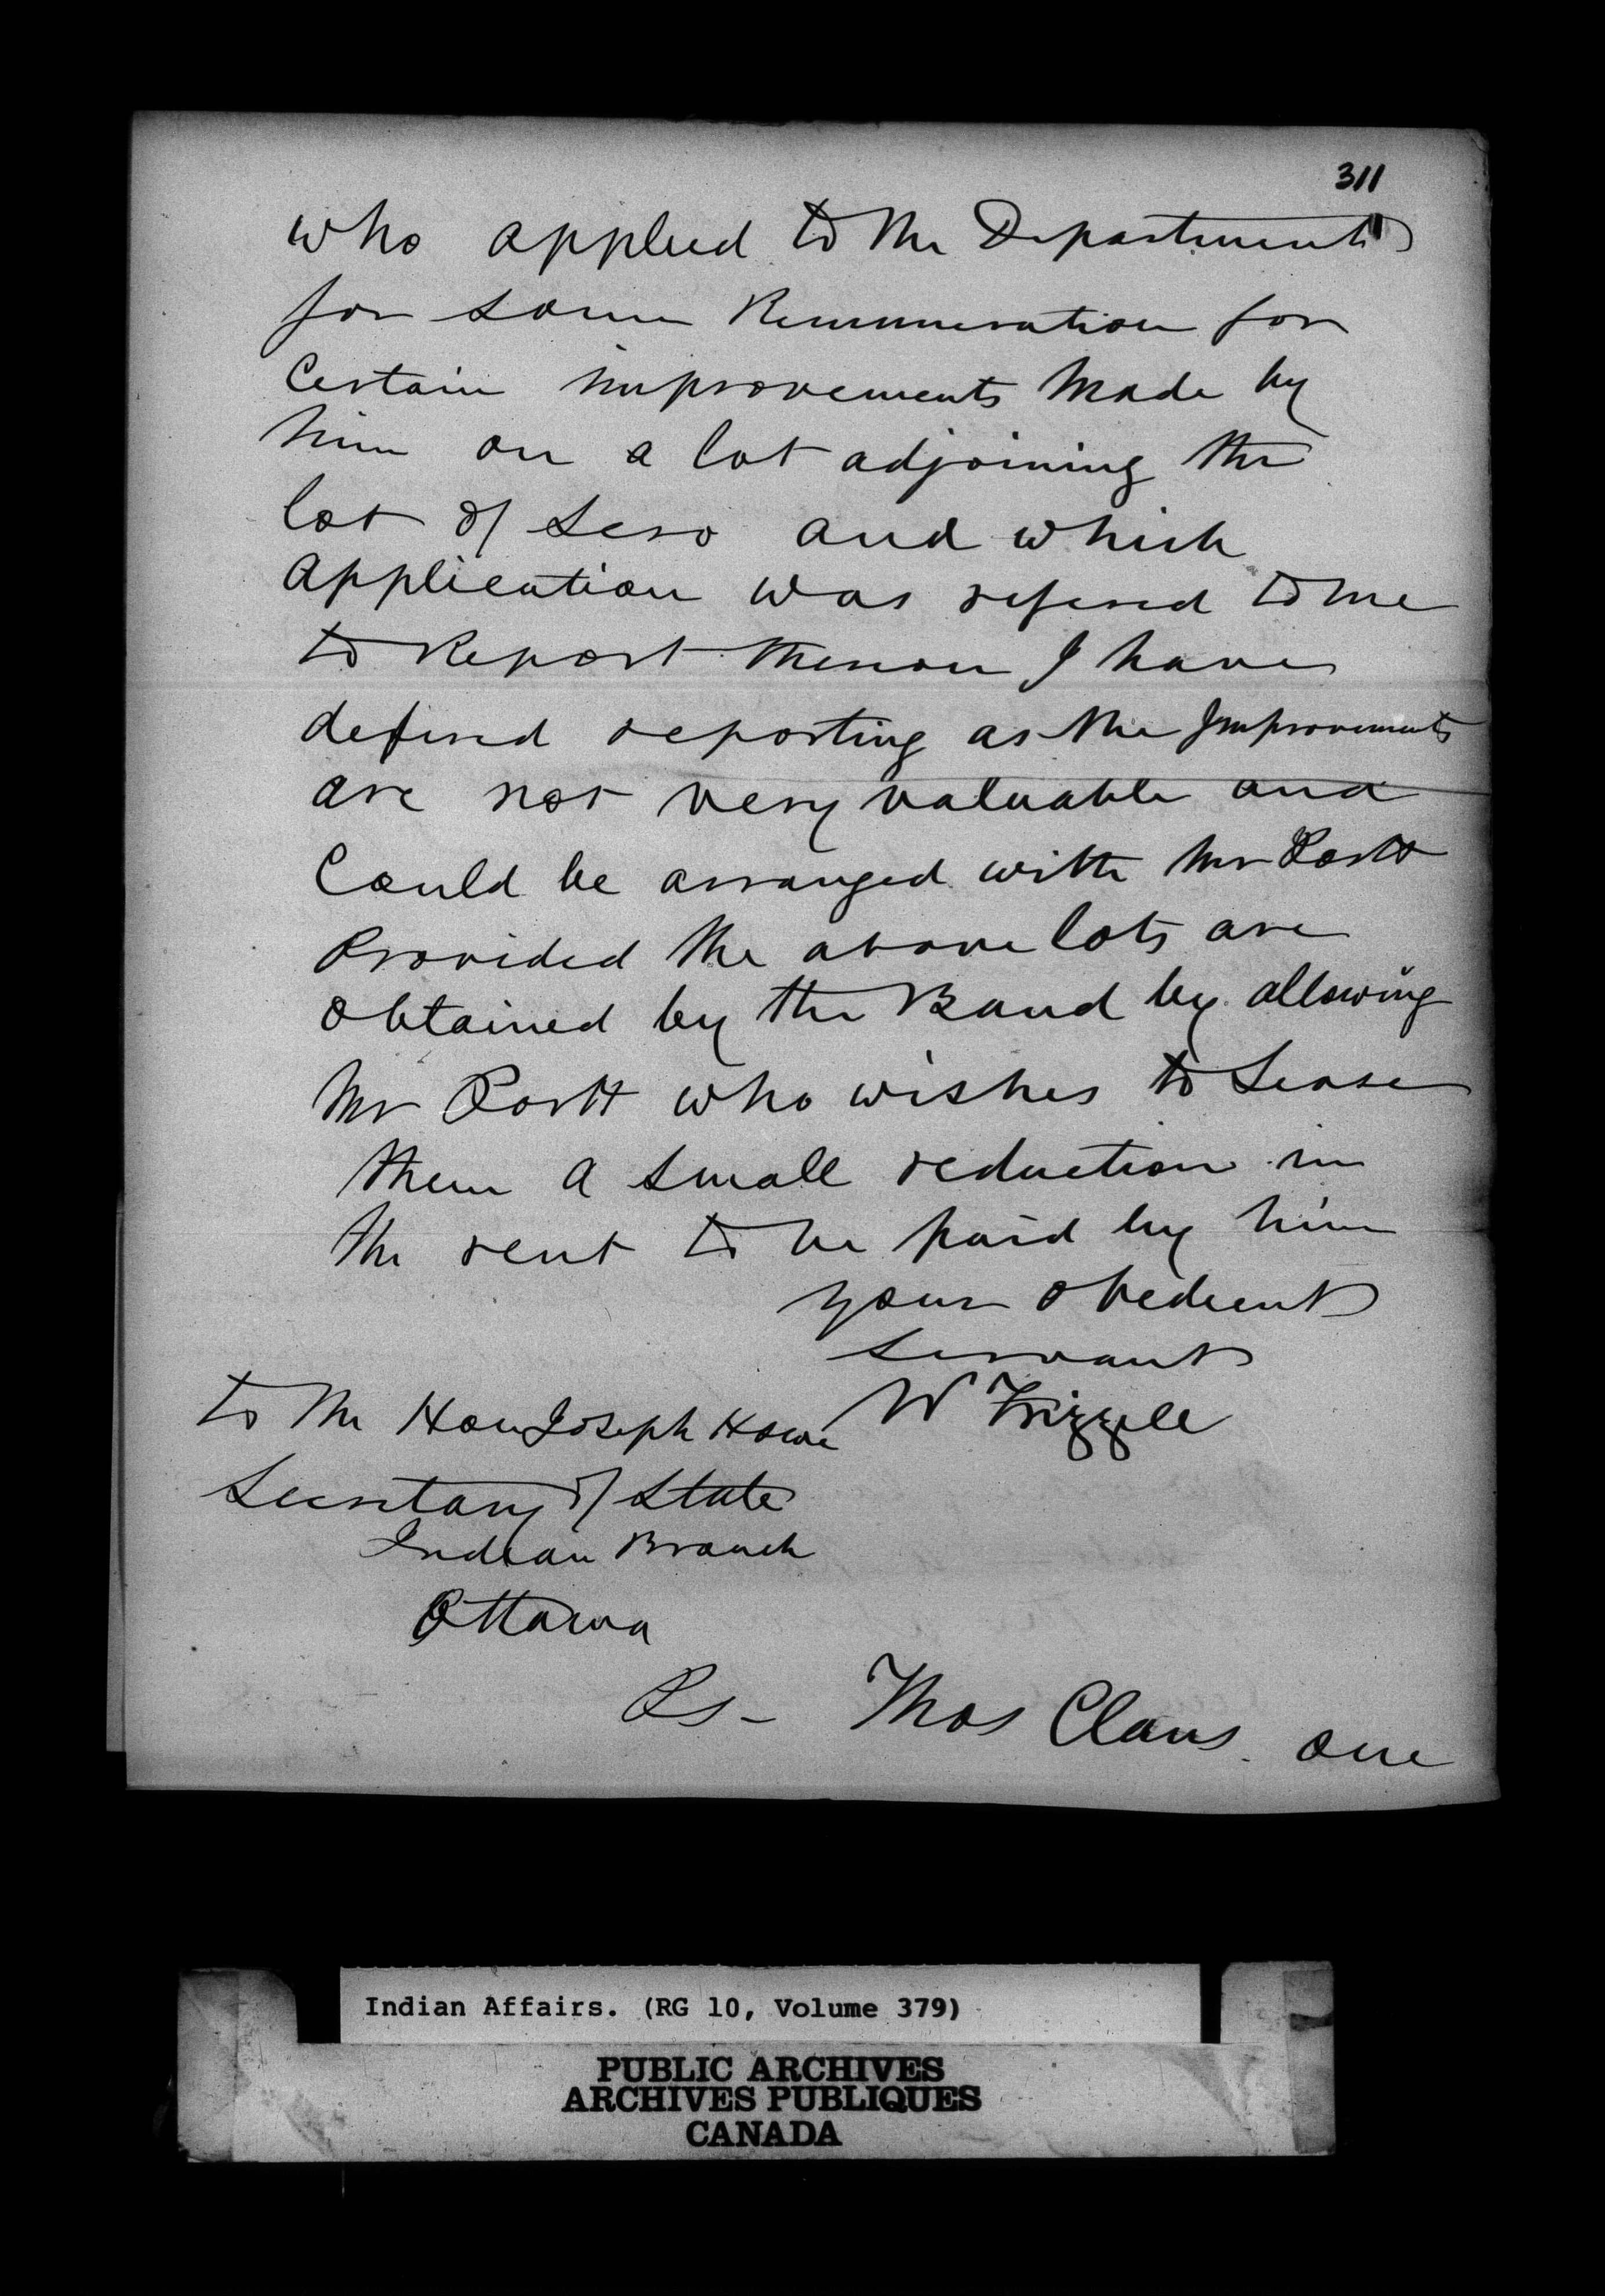 311
who applied to the Department
for some Remuneration for
Certain improvements Made by
him on a lot adjoining the
lot of Sero and which
application was refered to me
to Report thereon I have
defered reporting as the Improvements
are not very valuable and
Could be arranged with Mr
Provided the above lots are
obtained by the Band by allowing
Mr who wishes to Lease
them a small reduction in
the rent to be paid by him
your obedient
servant
W Frizzell
to the Hon Joseph Howe
Secretary of State
Indian Branch
Ottawa
Ps - Thos Claus one
Indian Affairs. (RG 10, Volume 379)
PUBLIC ARCHIVES
ARCHIVES PUBLIQUES
CANADA